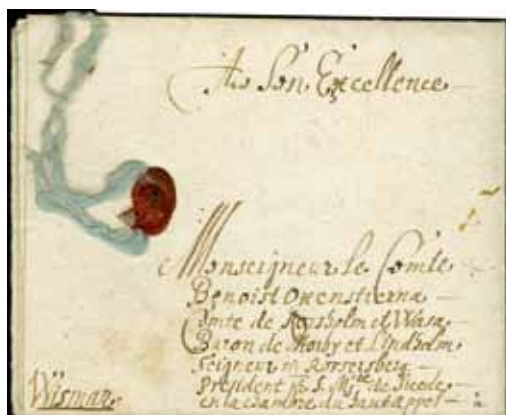 A Son Excellence
Monseigneur le Comte
Benoist Oxenstierna
Comte de Korsholm et Wasa
Baron de Moiby et Lindholm
Seigneur in
President de S. M.té de Suede
en la Chambre du haut appel
Wismar